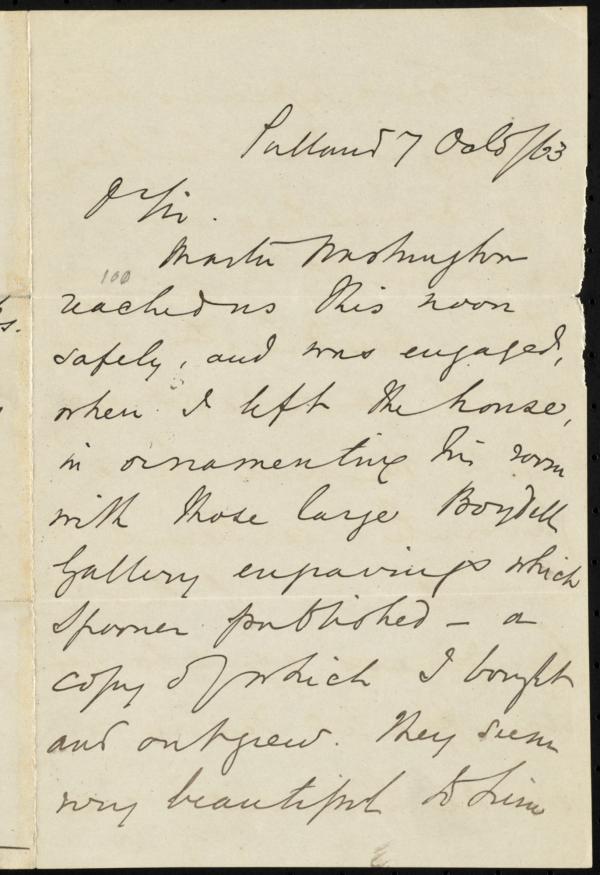 Portland 7 Oct /63
D Sir.
Master Washington
100
reached us this noon
safely, and was engaged,
when I left the house,
in ornamenting his room
with those large Boydell
Gallery engravings which
Spooner published – a
copy of which I bought
and outgrew. They seem
very beautiful to him
s.